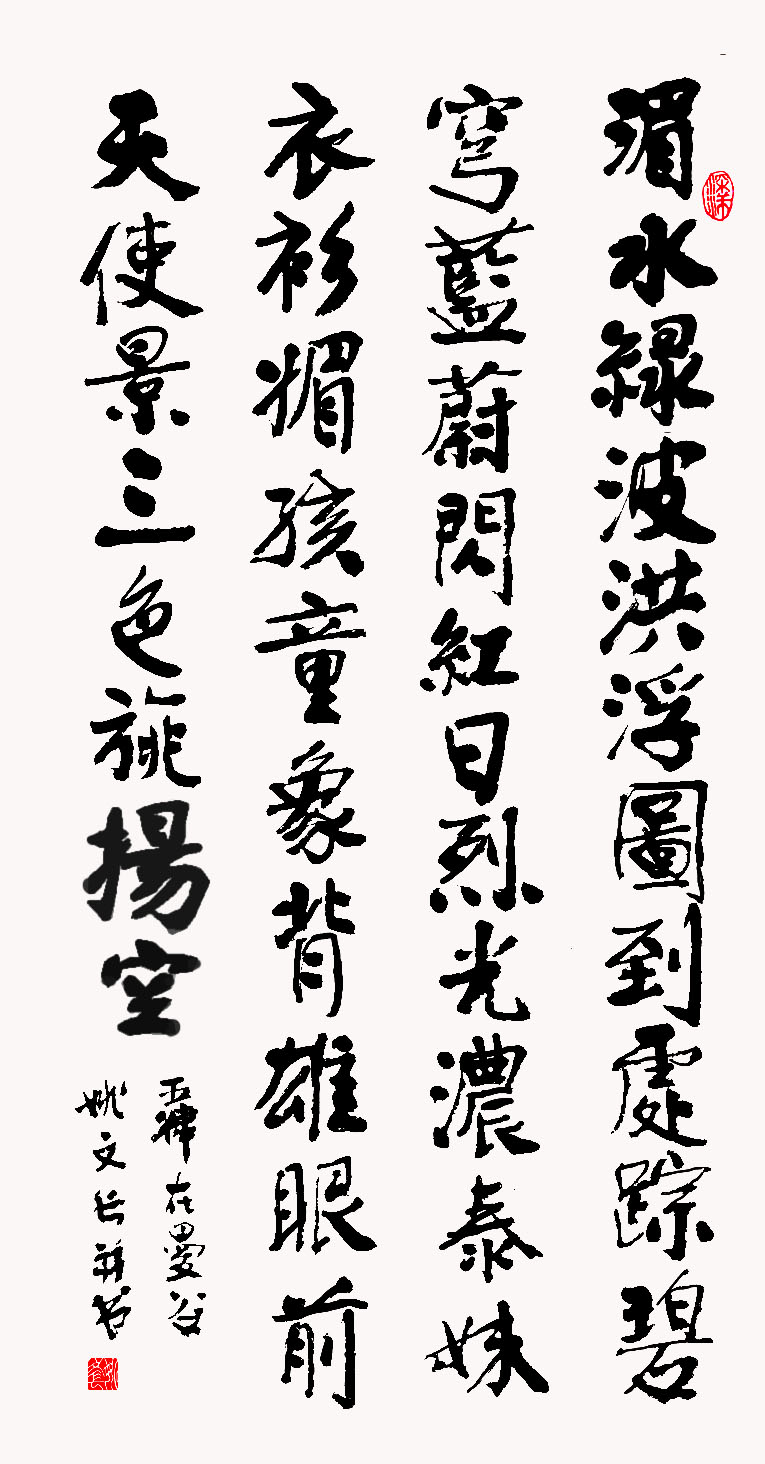 湄水綠波洪浮圖到處踪碧
穹藍蔚閃紅日烈光濃泰妹
衣衫媚孩童象背雄眼前
天使景三色旒揚空
在曼谷
姚文长并书